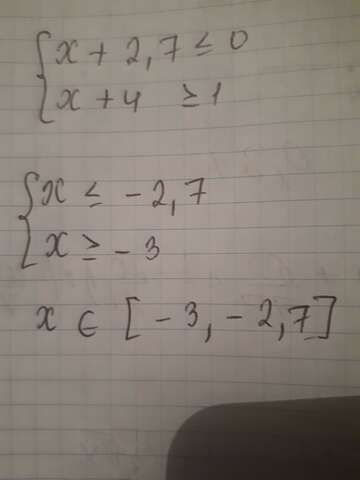 { x + 2,7 ≤ 0
x + 4 ≥ 1
{ x ≤ - 2,7
x ≥ - 3
x ∈ [ - 3, - 2,7 ]